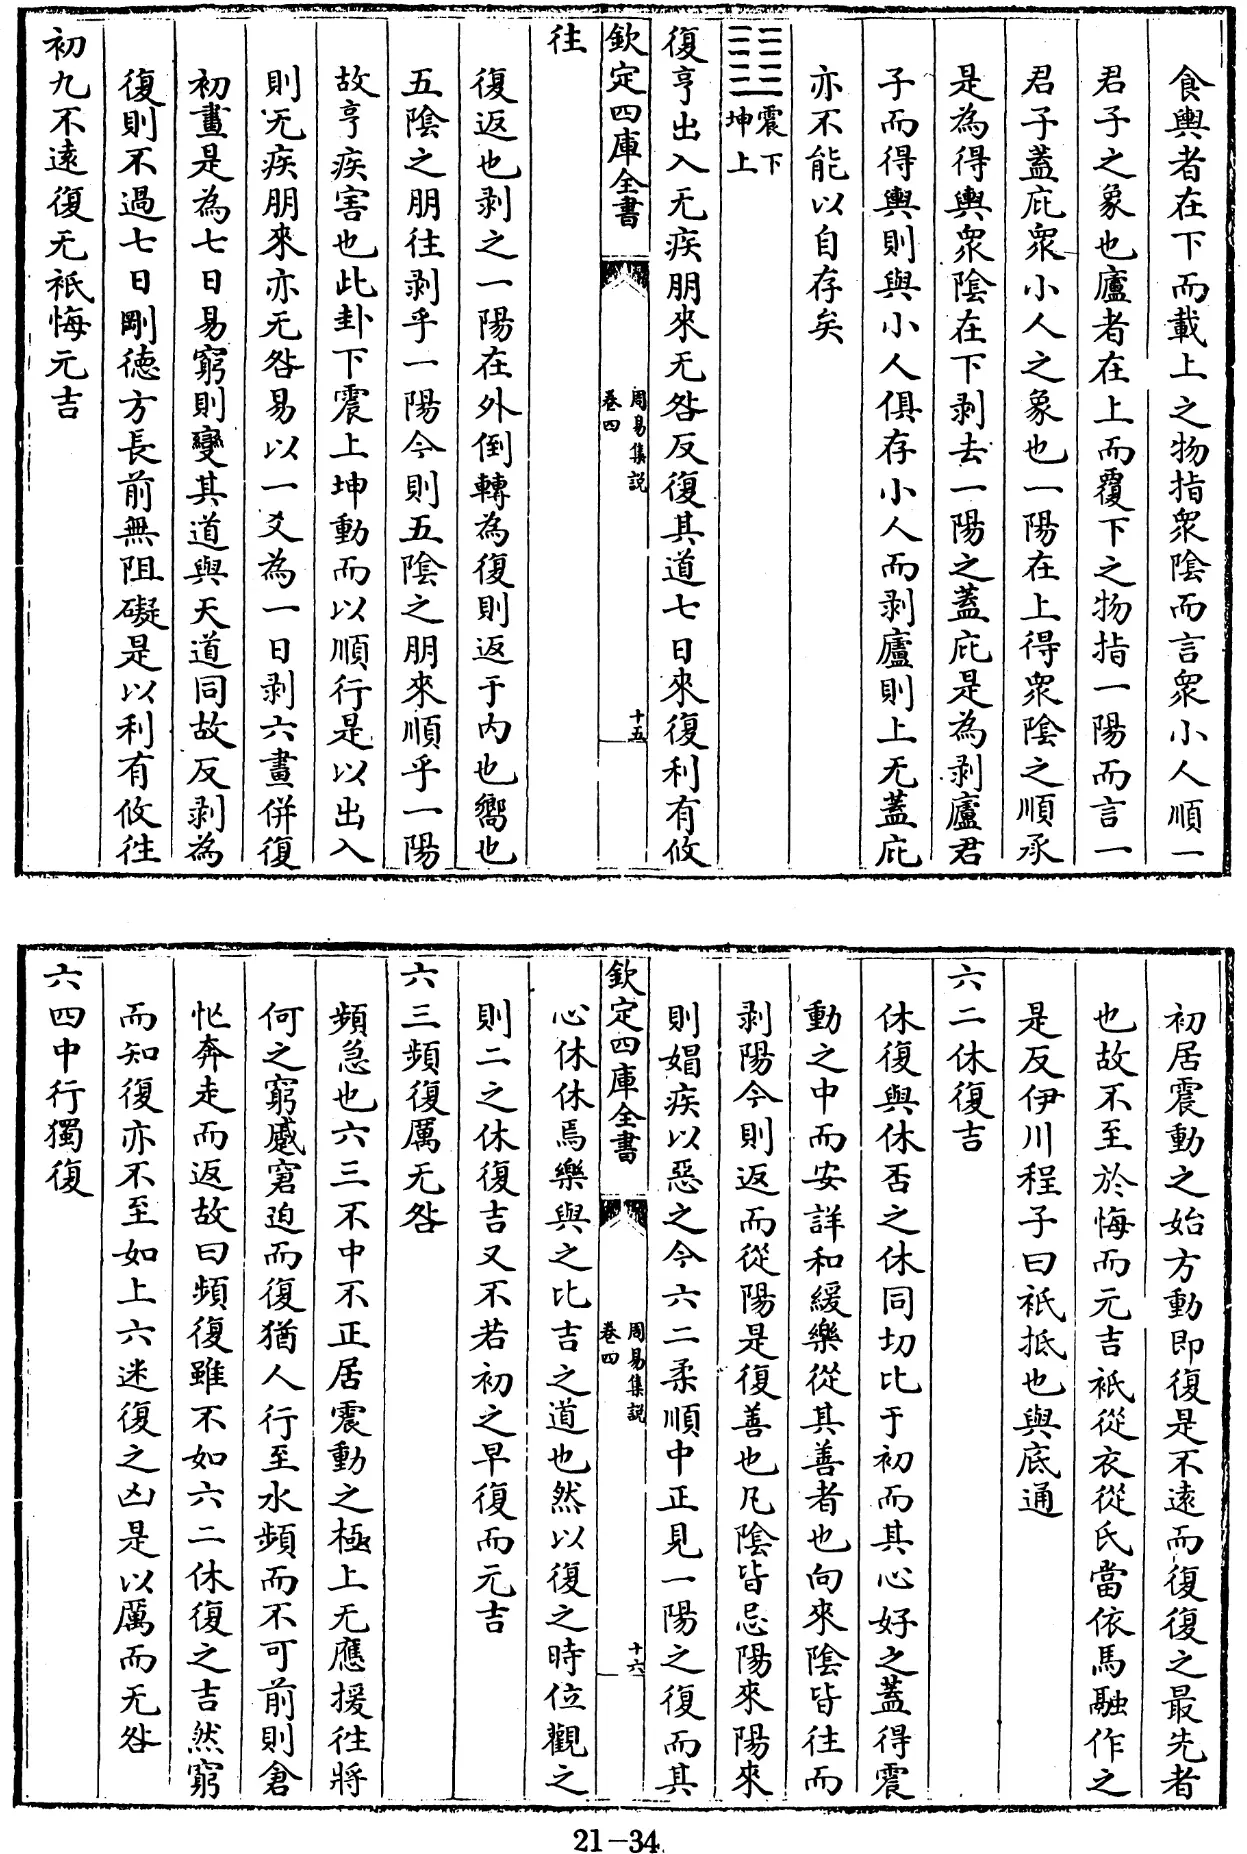 食輿者在下而載上之物指衆陰而言衆小人順一
君子之象也廬者在上而覆下之物指一陽而言一
君子蓋庇衆小人之象也一陽在上得衆陰之順承
是為得輿衆陰在下剥去一陽之蓋庇是為剥廬君
子而得輿則與小人俱存小人而剥廬則上无蓋庇
亦不能以自存矣
震下
坤上
復亨出入无疾朋來无咎反復其道七日來復利有攸
欽定四庫全書
周易集説
卷四
十五
往
復返也剥之一陽在外倒轉為復則返于内也嚮也
五陰之朋往剥乎一陽今則五陰之朋來順乎一陽
故亨疾害也此卦下震上坤動而以順行是以出入
則无疾朋來亦无咎易以一爻為一日剥六畫併復
初畫是為七日易窮則變其道與天道同故反剥為
復則不過七日剛德方長前無阻礙是以利有攸往
初九不遠復无祇悔元吉
初居震動之始方動即復是不遠而復復之最先者
也故不至於悔而元吉祇從衣從氏當依馬融作之
是反伊川程子曰祇抵也與底通
六二休復吉
休復與休否之休同切比于初而其心好之蓋得震
動之中而安詳和緩樂從其善者也向來陰皆往而
剥陽今則返而從陽是復善也凡陰皆忌陽來陽來
則媢疾以惡之今六二柔順中正見一陽之復而其
欽定四庫全書
周易集説
卷四
十六
心休休焉樂與之比吉之道也然以復之時位觀之
則二之休復吉又不若初之早復而元吉
六三頻復厲无咎
頻急也六三不中不正居震動之極上无應援往將
何之窮蹙窘迫而復猶人行至水頻而不可前則倉
忙奔走而返故曰頻復雖不如六二休復之吉然窮
而知復亦不至如上六迷復之凶是以厲而无咎
六四中行獨復
21-34